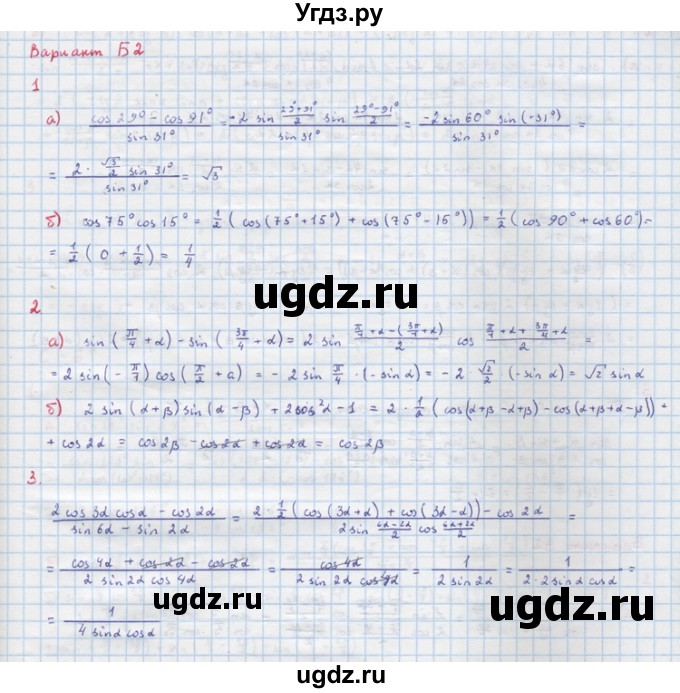 Угдз.ру
Вариант Б2
1
а) (cos 29° − cos 91°)/(sin 31°) = (−2 sin (29°+91°)/2 sin (29°−91°)/2)/(sin 31°) = (−2 sin 60° sin (−31°))/(sin 31°) =
= (2 · √3/2 sin 31°)/(sin 31°) = √3
б) cos 75° cos 15° = 1/2 ( cos(75°+15°) + cos (75°−15°)) = 1/2 (cos 90° + cos 60°) =
= 1/2 ( 0 + 1/2 ) = 1/4
ugdz.ru
ugdz.ru
2.
а) sin ( π/4 + α) − sin ( 3π/4 + α) = 2 sin (π/7 + α − (3π/7 + α))/2 cos (π/7 + α + 3π/4 + α)/2 =
= 2 sin (− π/7) cos ( π/2 + α) = − 2 sin π/4 · (− sin α) = − 2 · √2/2 · (− sin α) = √2 sin α
б) 2 sin (α + β) sin (α − β) + 2 cos²α − 1 = 2 · 1/2 ( cos(α+β −α+β) − cos (α+β+α−β)) +
+ cos 2α = cos 2β − cos 2α + cos 2α = cos 2β
ugdz.ru
3.
(2 cos 3α cos α − cos 2α)/(sin 6α − sin 2α) = (2 · 1/2 ( cos (3α + α) + cos (3α − α)) − cos 2α)/(2 sin (6α−2α)/2 cos (6α+2α)/2) =
= (cos 4α + cos 2α − cos 2α)/(2 sin 2α cos 4α) = (cos 4α)/(2 sin 2α cos 4α) = 1/(2 sin 2α) = 1/(2·2 sin α cos α) =
ugdz.ru
ugdz.ru
= 1/(4 sin α cos α)
ugdz.ru